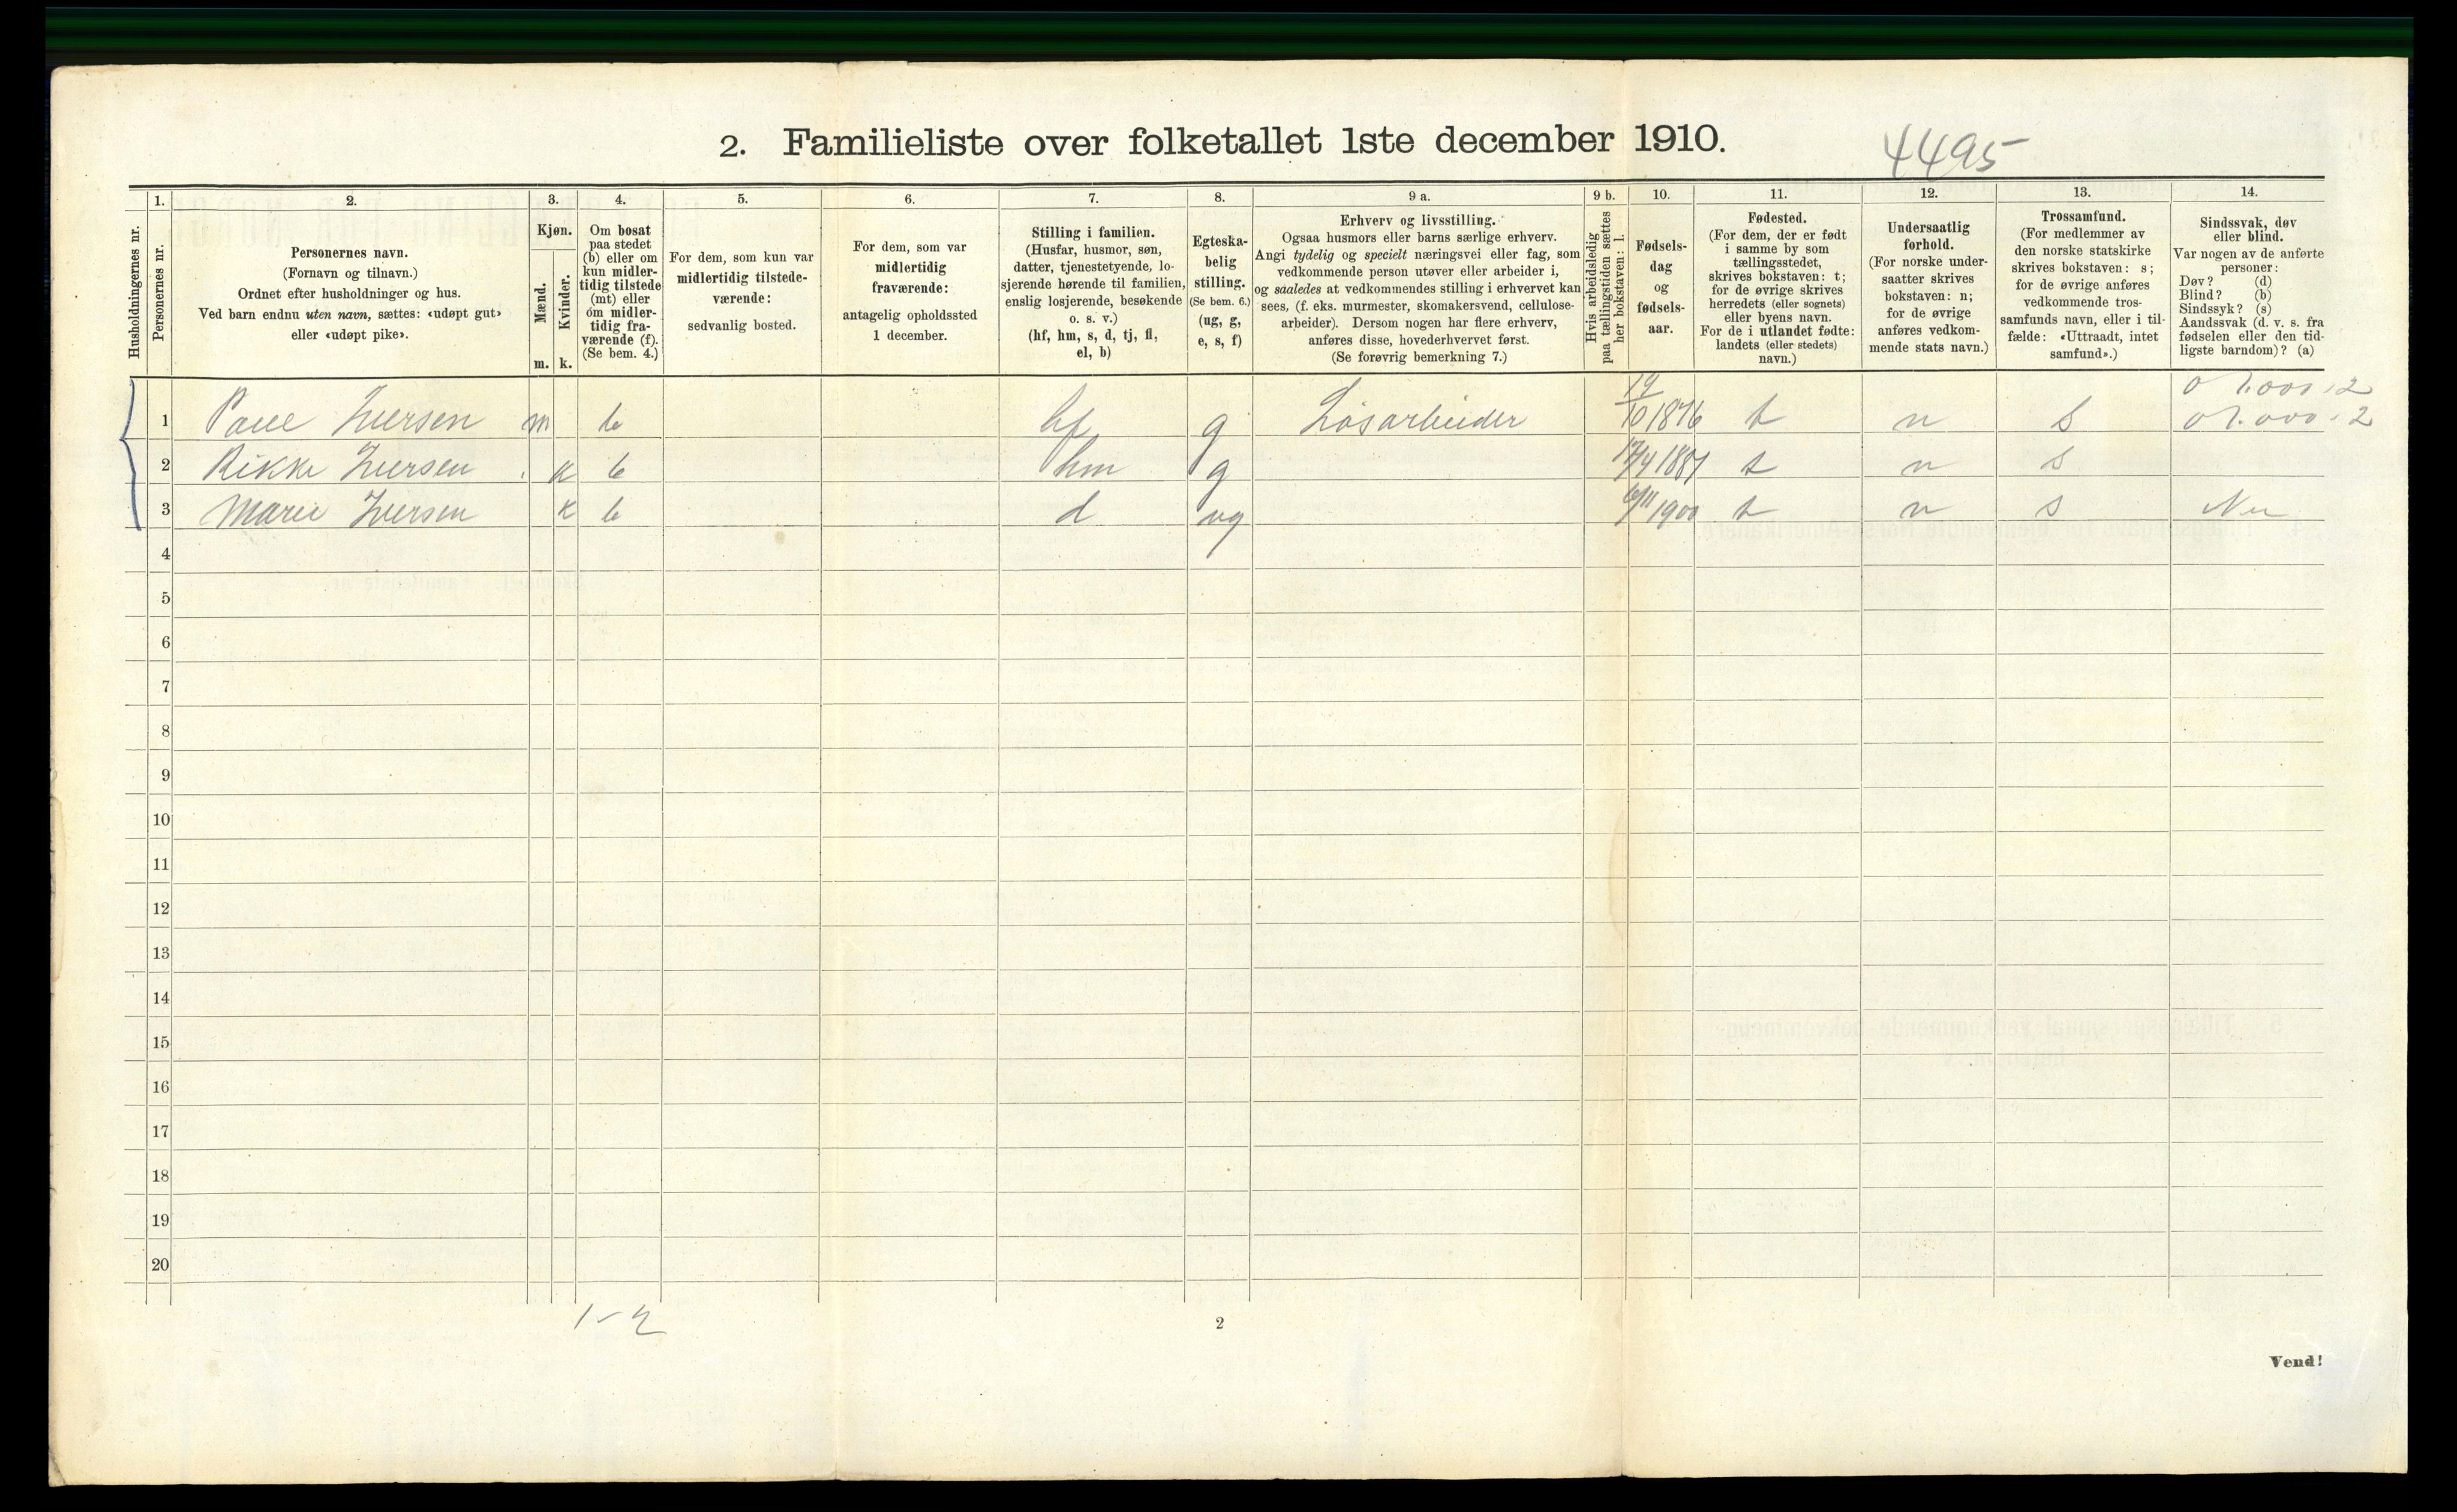 2. Familieliste over folketallet 1ste december 1910.
4495
Husholdningernes nr.
1.
Personernes nr.
2.
Personernes navn.
(Fornavn og tilnavn.)
Ordnet efter husholdninger og hus.
Ved barn endnu uten navn, sættes: «udøpt gut»
eller «udøpt pike».
3.
Kjøn.
Mænd.
Kvinder.
m. k.
4.
Om bosat
paa stedet
(b) eller om
kun midler-
tidig tilstede
(mt) eller
om midler-
tidig fra-
værende (f).
(Se bem. 4.)
5.
For dem, som kun var
midlertidig tilstede-
værende:
sedvanlig bosted.
6.
For dem, som var
midlertidig
fraværende:
antagelig opholdssted
1 december.
7.
Stilling i familien.
(Husfar, husmor, søn,
datter, tjenestetyende, lo-
sjerende hørende til familien,
enslig losjerende, besøkende
o. s. v.)
(hf, hm, s, d, tj, fl,
el, b)
8.
Egteska-
belig
stilling.
(Se bem. 6.)
(ug, g,
e, s, f)
9 a.
Erhverv og livsstilling.
Ogsaa husmors eller barns særlige erhverv.
Angi tydelig og specielt næringsvei eller fag, som
vedkommende person utøver eller arbeider i,
og saaledes at vedkommendes stilling i erhvervet kan
sees, (f. eks. murmester, skomakersvend, cellulose-
arbeider). Dersom nogen har flere erhverv,
anføres disse, hovederhvervet først.
(Se forøvrig bemerkning 7.)
9 b.
Hvis arbeidsledig
paa tællingstiden sættes
her bokstaven: l.
10.
Fødsels-
dag
og
fødsels-
aar.
11.
Fødested.
(For dem, der er født
i samme by som
tællingsstedet,
skrives bokstaven: t;
for de øvrige skrives
herredets (eller sognets)
eller byens navn.
For de i utlandet fødte:
landets (eller stedets)
navn.)
12.
Undersaatlig
forhold.
(For norske under-
saatter skrives
bokstaven: n;
for de øvrige
anføres vedkom-
mende stats navn.)
13.
Trossamfund.
(For medlemmer av
den norske statskirke
skrives bokstaven: s;
for de øvrige anføres
vedkommende tros-
samfunds navn, eller i til-
fælde: «Uttraadt, intet
samfund».)
14.
Sindssvak, døv
eller blind.
Var nogen av de anførte
personer:
Døv? (d)
Blind? (b)
Sindssyk? (s)
Aandssvak (d. v. s. fra
fødselen eller den tid-
ligste barndom)? (a)
1 Paul Iversen m b hf g Løsarbeider 19/10 1876 t n s
2 Rikke Iversen k b hm g t n s
3 Marie Iversen k b d ug 6/11 1900 t n s Nei
4
5
6
7
8
9
10
11
12
13
14
15
16
17
18
19
20
1-2
2
Vend!